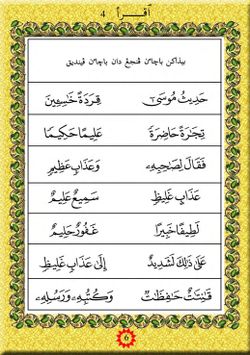 4 أقرأ
بيذاكن باچاٴن ڤنجڠ دان باچاٴن ڤينديق
حَدِيثُ مُوسَىٰ قِرَدَةً خَاسِـِٔينَ
تِجَـٰرَةً حَاضِرَةً عَلِيمًا حَكِيمًا
فَقَالَ لِصَـٰحِبِهِۦ وَعَذَابٍ عَظِيمٍ
عَذَابٍ غَلِيظٍ سَمِيعٌ عَلِيمٌ
لَطِيفًا خَبِيرًا غَفُورٌ حَلِيمٌ
عَلَىٰ ذَٰلِكَ لَشَدِيدٌ إِلَىٰ عَذَابٍ غَلِيظٍ
قَـٰنِتَـٰتٌ حَـٰفِظَـٰتٌ وَكُتُبِهِۦ وَرُسُلِهِۦ